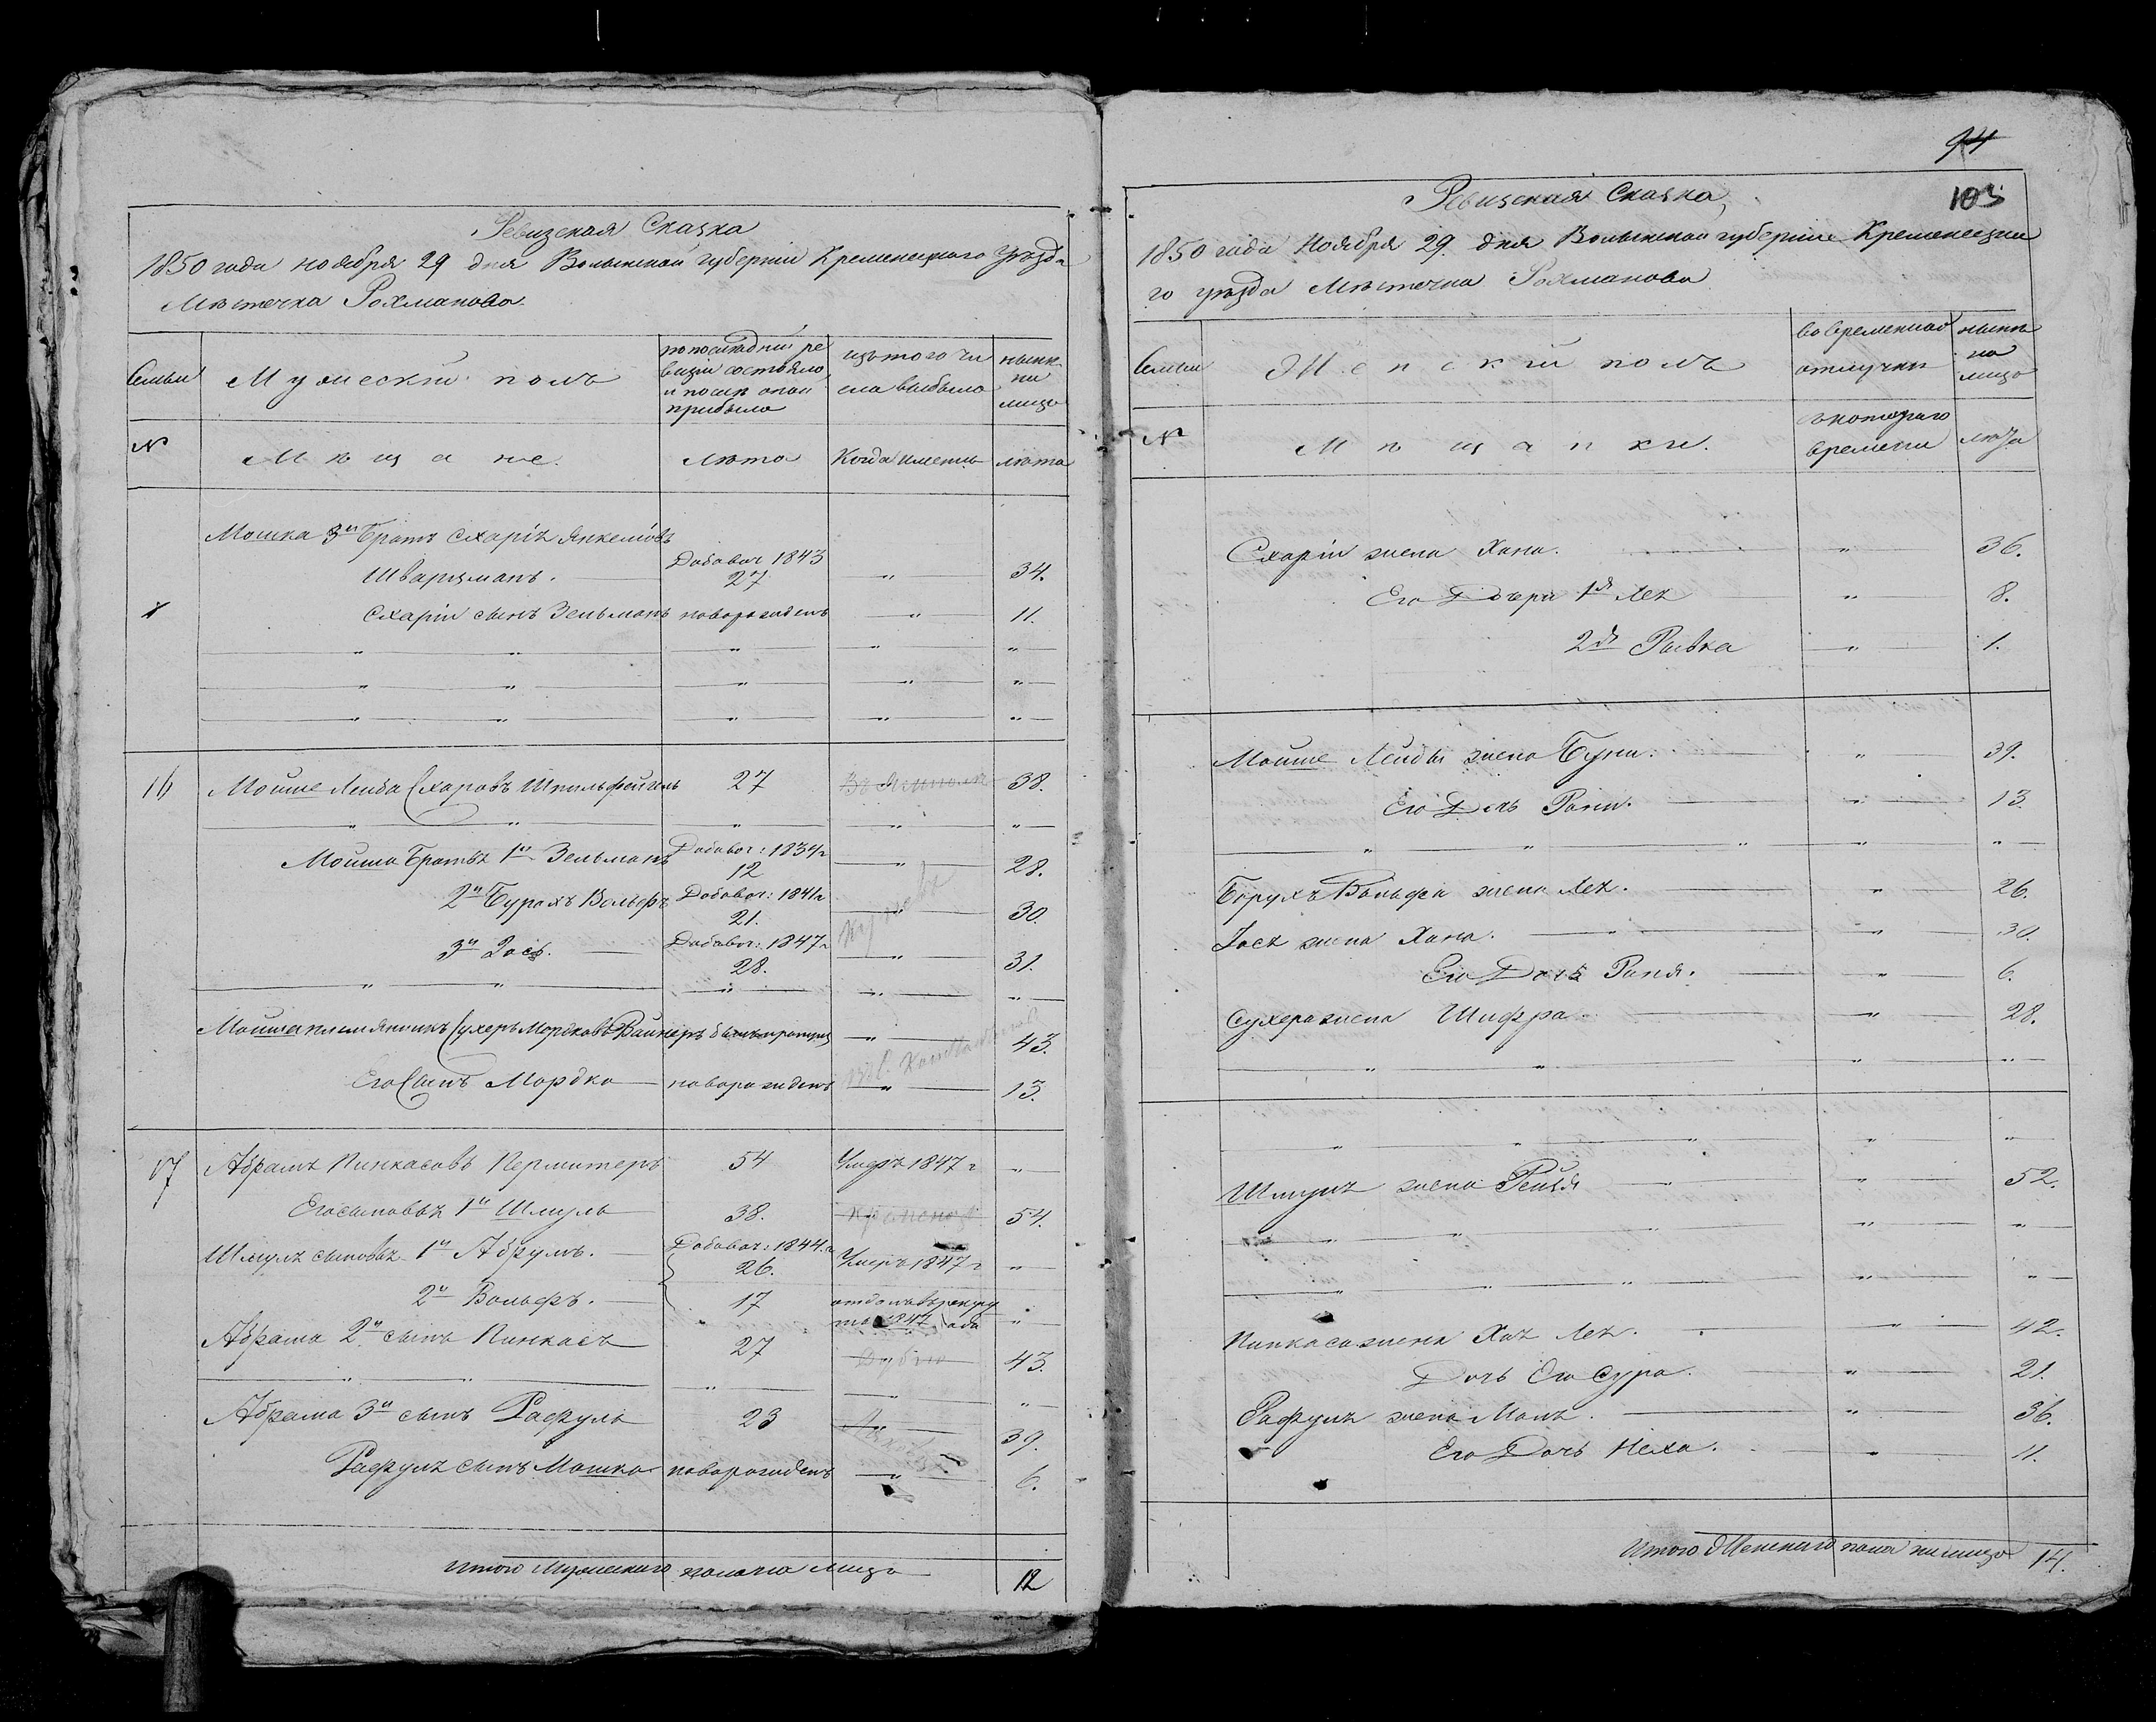 Ревизская Сказка
1850 года ноября 29 дня Волынской губернии Кременецкого Уезда
Местечка Рохманова
Семьи
Мужеский полъ
по последней ре
визии состояло,
и после оной
прибыло
изъ того чи
сла выбыло
ныне
на
лицо
№
Мещане.
Лета
Когда именно
лета
Мошка 3й Братъ Схаріъ Янкелювъ
Шварцманъ. Добавоч 1843 27 " 34.
Схаріи сынъ Зельманъ новорожденъ " 11.
16 Мойше Лейба Схаровъ Шпильфейгель 27 Въ Ямполе 38.
Мойша Братья 1й Зельманъ Добавоч: 1834г 12 " 28.
2й Бурахъ Вольфъ Добавоч: 1841г 21. " 30.
3й Іось. Добавоч: 1847г 28. " 31.
Мойша племянникъ Сухеръ Мордковъ Вайнеръ былъ пропущ " 43.
Его Сынъ Мордко новорожденъ " 13.
17 Абрамъ Пинкасовъ Перлмитеръ 54 Умеръ 1847 г "
Его сыновья 1й Шмуль 38. Кременец 54.
Шмуля сыновья 1й Абрумъ. Добавоч: 1844.г 26. Умеръ 1847 г "
2й Вольфъ. 17 отданъ въ рекру
ты 1847 года "
Абрама 2й сынъ Пинкасъ 27 Дубно 43.
Абрама 3й сынъ Рафуль 23 " 39.
Рафуля сынъ Мошко новорожденъ " 6.
Итого Мужескаго пола на лицо 12
94
103
Ревизская Сказка,
1850 года Ноября 29 дня Волынской губерніи Кременецка
го уезда Местечка Рохманова
Семьи
Женский полъ
во временной
отлучки
ныне
на
лицо
№
Мещанки.
съ котораго
времени
лета
Схаріи жена Хана. " 36.
Его Дочери 1я Лея " 8.
2я Ривка " 1.
Мойше Лейбы жена Буни. " 39.
Его Дочь Рани. " 13.
Борухъ Вольфа жена Лея. " 26.
Іося жена Хана. " 30.
Его Дочь Раня. " 6.
Сухера жена Шифра " 28.
Шмуля жена Рейзя " 52.
Пинкаса жена Хая Лея. " 42.
Дочь Его Сура. " 21.
Рафуля жена Маля. " 36.
Его Дочь Неха. " 11.
Итого Женскаго пола на лицо 14.